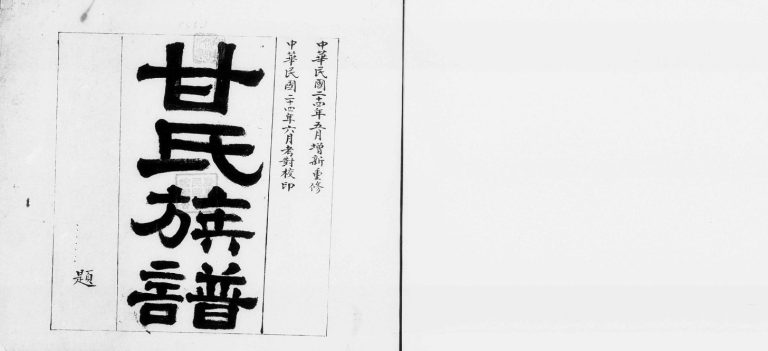 中華民國二十四年五月增新重修
中華民國二十四年六月考對校印
甘氏族譜
題